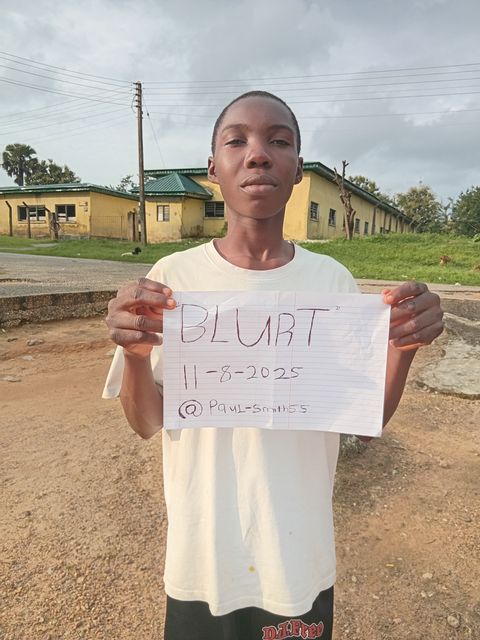 "BLURT"
11-8-2025
@ Paul-Smith55